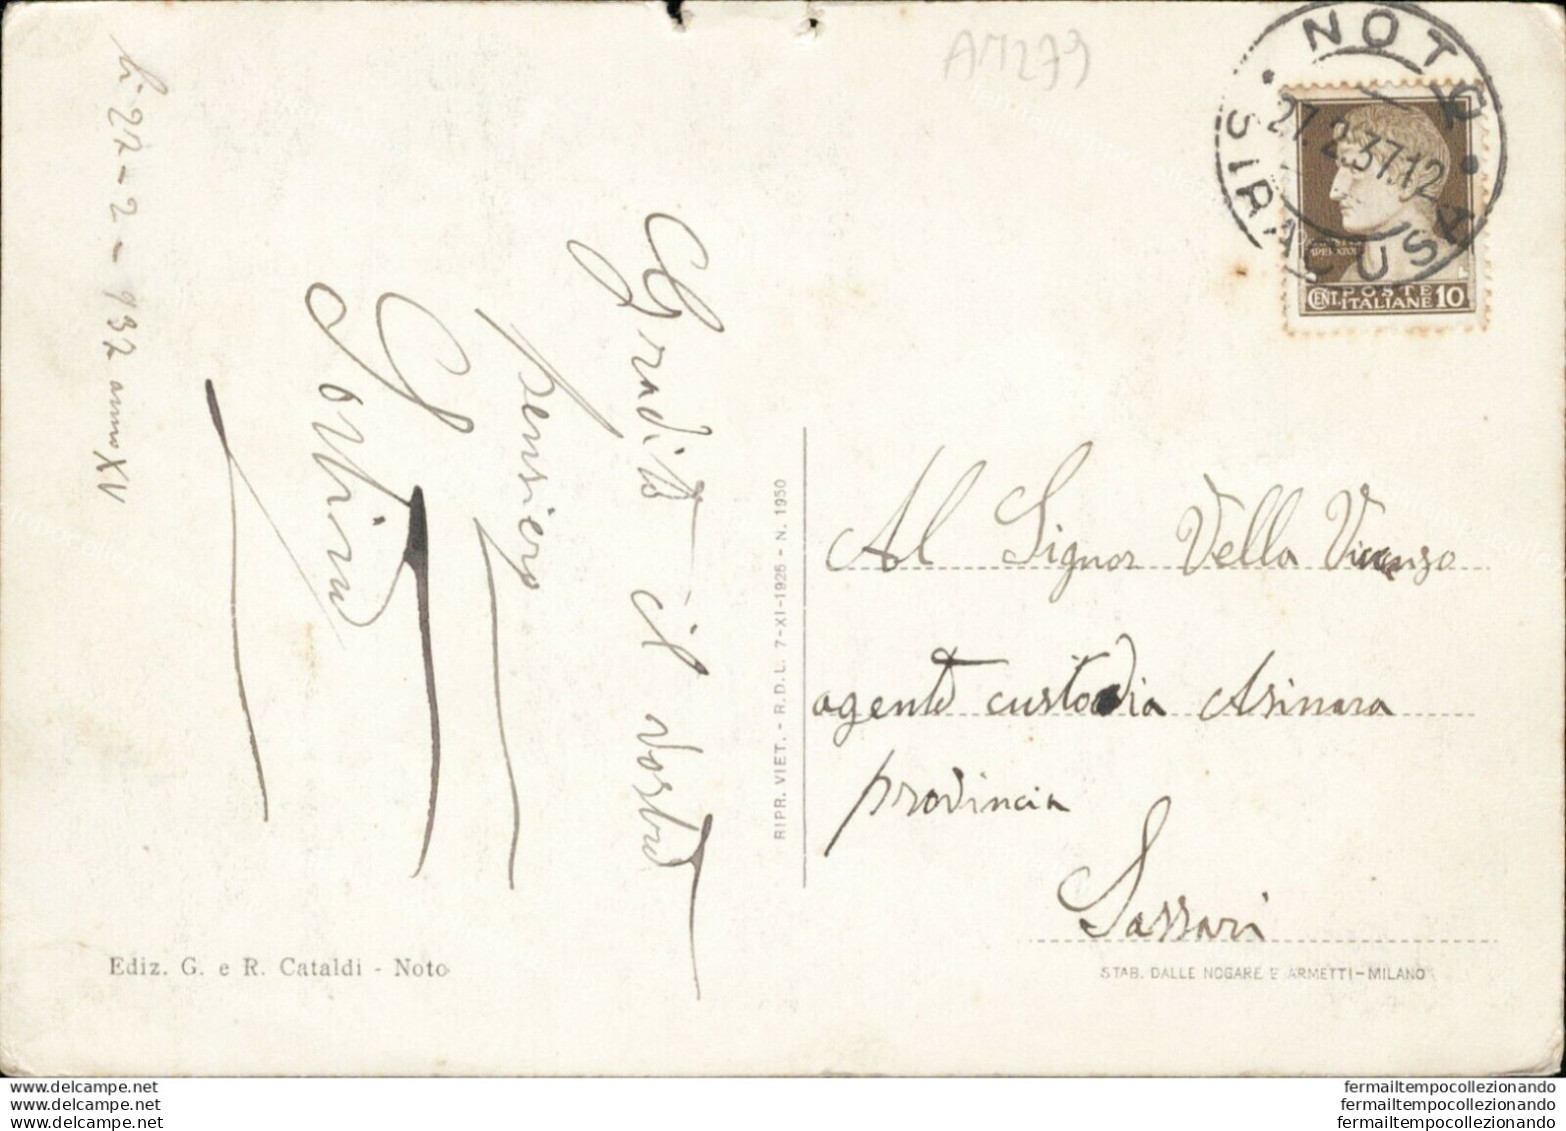 AM279
NOTO
SIRACUSA
27.2.37.12
CENT. POSTE ITALIANE 10
li 27-2-937 anno XV
Gradito il vostro
pensiero
RIPR. VIET. - R.D.L. 7-XI-1925 - N. 1950
Al Signor Vella Vincenzo
agente custodia Asinara
provincia
Sassari
Ediz. G. e R. Cataldi - Noto
STAB. DALLE NOGARE E ARMETTI-MILANO
www.delcampe.net
www.delcampe.net
www.delcampe.net
fermailtempocollezionando
fermailtempocollezionando
fermailtempocollezionando